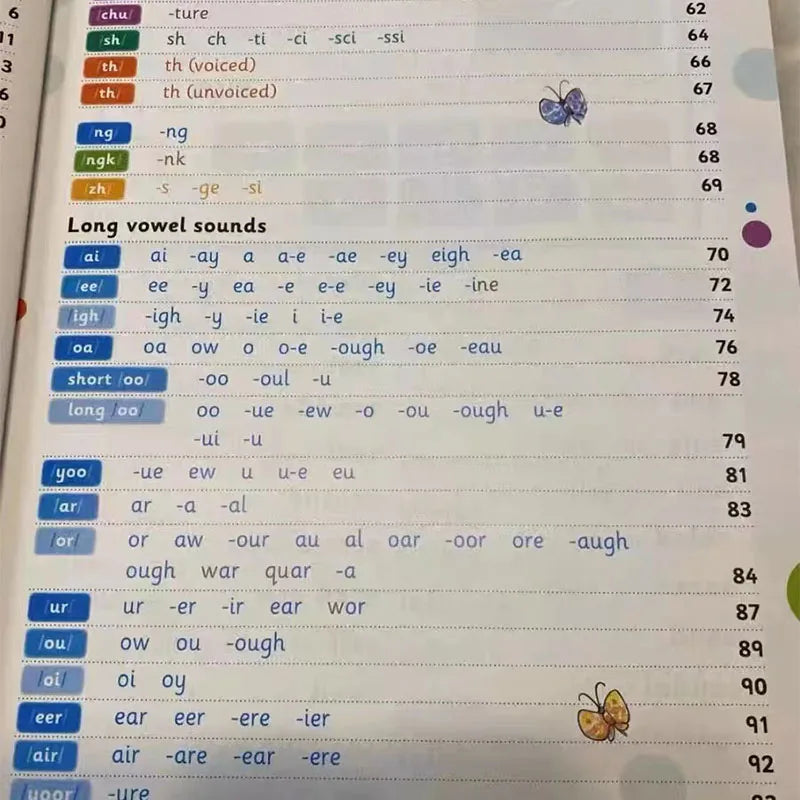 6
11
3
6
0
/chu/ -ture 62
/sh/ sh ch -ti -ci -sci -ssi 64
/th/ th (voiced) 66
/th/ th (unvoiced) 67
/ng/ -ng 68
/ngk/ -nk 68
/zh/ -s -ge -si 69
Long vowel sounds
/ai/ ai -ay a a-e -ae -ey eigh -ea 70
/ee/ ee -y ea -e e-e -ey -ie -ine 72
/igh/ -igh -y -ie i i-e 74
/oa/ oa ow o o-e -ough -oe -eau 76
short /oo/ -oo -oul -u 78
long /oo/ oo -ue -ew -o -ou -ough u-e
-ui -u 79
/yoo/ -ue ew u u-e eu 81
/ar/ ar -a -al 83
/or/ or aw -our au al oar -oor ore -augh
ough war quar -a 84
/ur/ ur -er -ir ear wor 87
/ou/ ow ou -ough 89
/oi/ oi oy 90
/eer/ ear eer -ere -ier 91
/air/ air -are -ear -ere 92
/yoor/ -ure